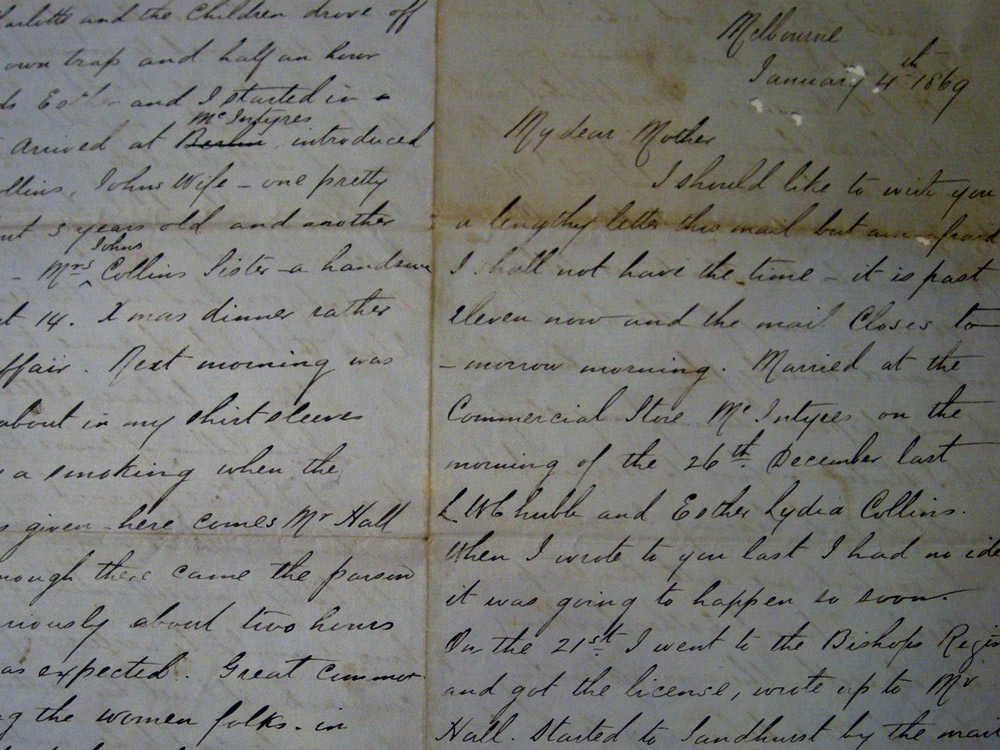 Charlotte and the Children drove off
own trap and half an hour
Esther and I started in a
McIntyres
arrived at Berlin, introduced
Collins, Johns Wife - one pretty
5 years old and another
Johns
- Mrs Collins Sister - a handsome
at 14. Xmas dinner rather
affair. Next morning was
about in my shirt sleeves
a smoking when the
given - here comes Mr Hall
enough there came the parson
about two hours
as expected. Great Commot-
the women folks. in
Melbourne
January 4th 1869
My dear Mother
I should like to write you
a lengthy letter this mail but am afraid
I shall not have the time - it is past
eleven now and the mail Closes to
-morrow morning. Married at the
Commercial Store McIntyres on the
morning of the 26th December last
L W Chubb and Esther Lydia Collins.
When I wrote to you last I had no ide
it was going to happen so soon.
On the 21st I went to the Bishops Regis
and got the license, wrote up to Mr
Hall. Started to Sandhurst by the mail